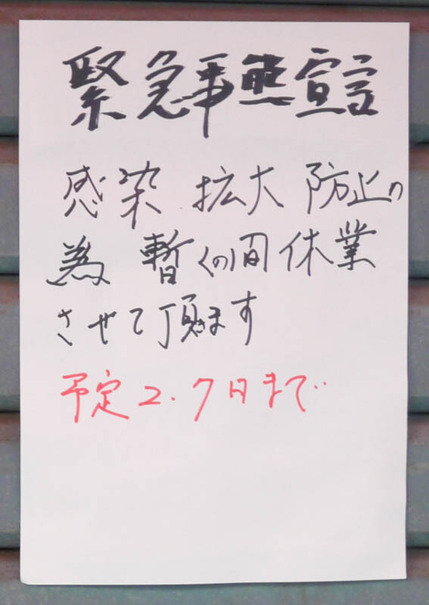 緊急事態宣言
感染 拡大 防止の
為 暫くの間 休業
させて頂きます
予定 2.7日まで